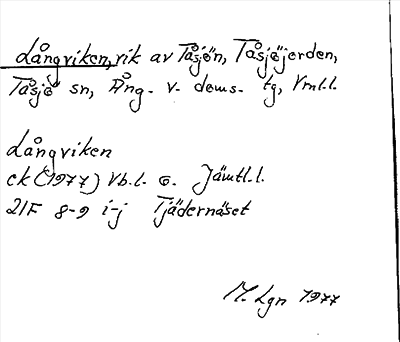 Långviken, vik av Tåsjön, Tåsjöjorden,
Tåsjö sn, Ång. v. doms. tg, Vrnl.l.
Långviken
ek (1977) Vb.l. o. Jämtl.l.
21F 8-9 i-j Tjädernäset
M. Lgn 1977